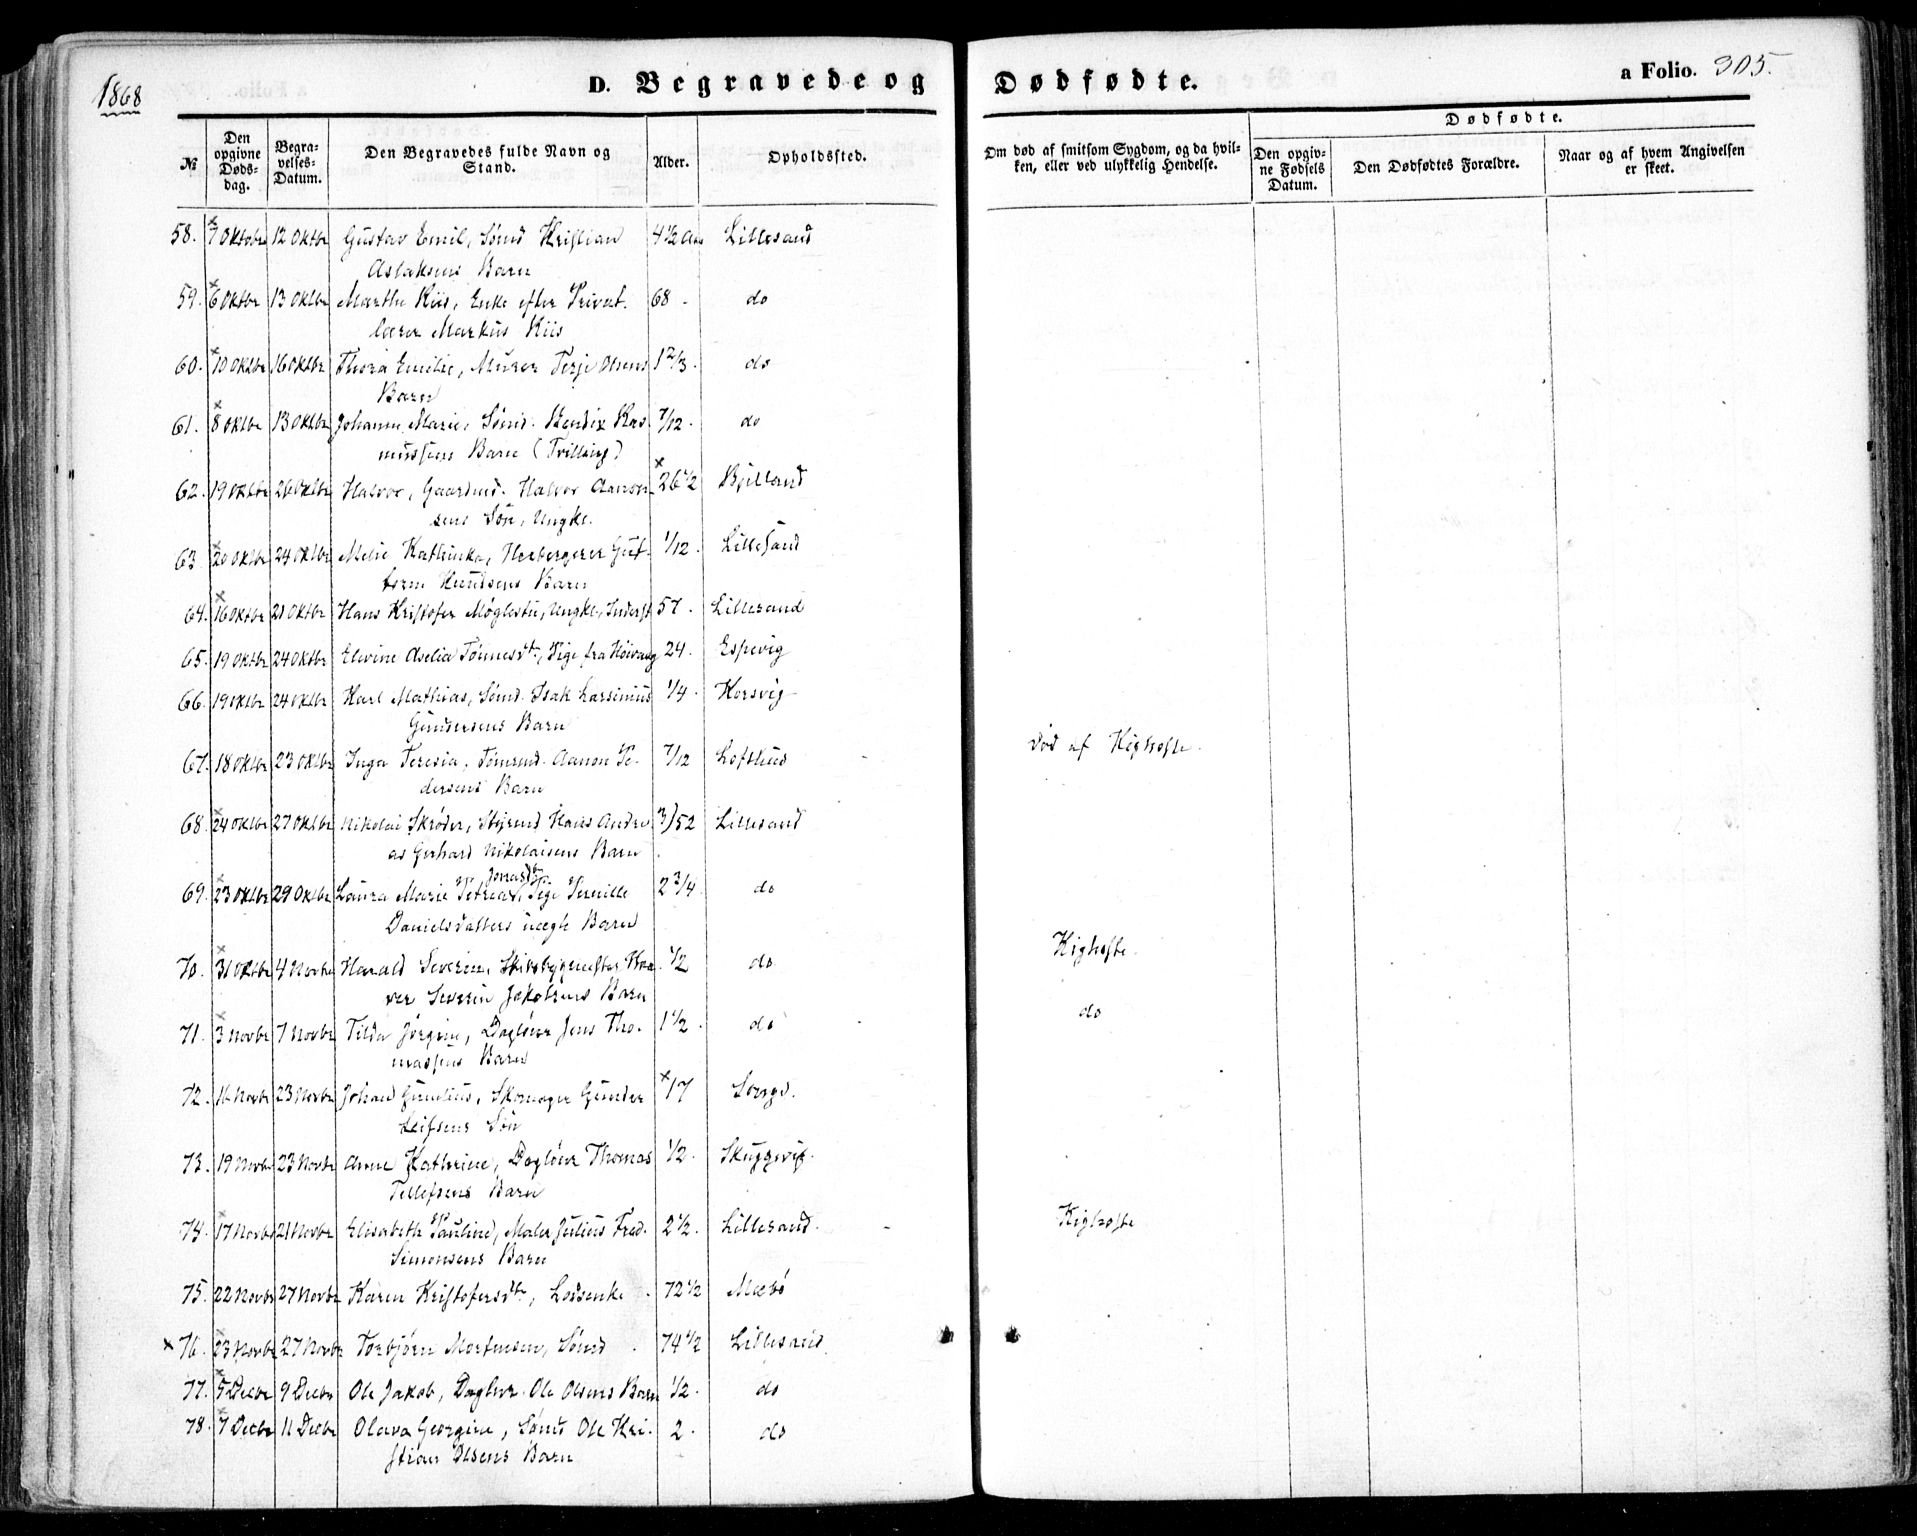 1868
D. Begravede og Dødfødte.
a Folio. 305.
№
Den opgivne Døds-dag.
Begra-velses-Datum.
Den Begravedes fulde Navn og Stand.
Alder.
Opholdssted.
Om død af smitsom Sygdom, og da hvil-ken, eller ved ulykkelig Hendelse.
Dødfødte.
Den opgiv-ne Fødsels Datum.
Den Dødfødtes Forældre.
Naar og af hvem Angivelsen er skeet.
58. 7 Oktober 12 Oktbr Gustav Emil, Sømd Kristian 4½ Aar Lillesand
Aslaksens Barn
59. 6 Oktbr 13 Oktbr Marthe Riis, Enke efter Privat- 68 - do
lærer Markus Riis
60. 10 Oktbr 16 Oktbr Thora Emilie, Murer Terje Olsens 1 2/3. do
Barn
61. 8 Oktbr 13 Oktbr Johanne Marie, Sømd. Bendix Ras- 7/12. do
mussens Barn (Tvilling)
62. 19 Oktbr 26 Oktbr Halvor, Gaardmd. Halvor Aanon- 26½ Bjelland
sens Søn, Ungkl.
63 20 Oktbr 24 Oktbr Melie Kathinka, Herbergerer Gut- 1/12. Lillesand
torm Knudsens Barn
64. 16 Oktbr 21 Oktbr Hans Kristofer Møglestu, Ungkl., Inderst 57. Lillesand
65. 19 Oktbr 24 Oktbr Elevine Aselia Tønnesdt., Pige fra Høivaag 24. Espevig
66. 19 Oktbr 24 Oktbr Karl Mathias, Sømd. Isak Larsinius 1/4. Korsvig
Gundersens Barn
67. 18 Oktbr 23 Oktbr Inga Teresia, Tømrmd. Aanon Pe- 7/12 Lofthus død af Kighoste.
dersens Barn
68. 24 Oktbr 27 Oktbr Nikolai Skrøder, Styrmd Hans Andre- 3/52 Lillesand
as Gerhard Nikolaisens Barn
Jonasdt.
69. 23 Oktbr 29 Oktbr Laura Marie Petrea, Pige Pernille 2 3/4. do
Danielsdatters uægte Barn
70. 31 Oktbr 4 Novbr Harald Severin, Skibsbygmester 1/2 do Kighoste.
ver Severin Jakobsens Barn
71. 3 Novbr 7 Novbr Tilda Jørgine, Dagløner Jens Tho- 1½. do do
massens Barn
72. 16 Novbr 23 Novbr Johan Gunelius, Skomager Gunder 17
Leifsens Søn
73. 19 Novbr 23 Novbr Anne Kathrine, Dagløner Thomas 1/2. Skuggevig.
Tellefsens Barn
74. 17 Novbr 21 Novbr Elisabeth Pauline, Maler Julius Fred. 2½. Lillesand. Kighoste
Simonsens Barn
75. 22 Novbr 27 Novbr Karen Kristofersdtr, Lodsenke 72½ Mæbø
76. 23 Novbr 27 Novbr Torbjørn Mortensen, Sømd 74½ Lillesand
77. 5 Decbr 9 Decbr Ole Jakob, Dagløner. Ole Olsens Barn 1/2. do
78. 7 Decbr 11 Decbr Olava Georgine, Sømd Ole Kri- 2. do
stian Olsens Barn